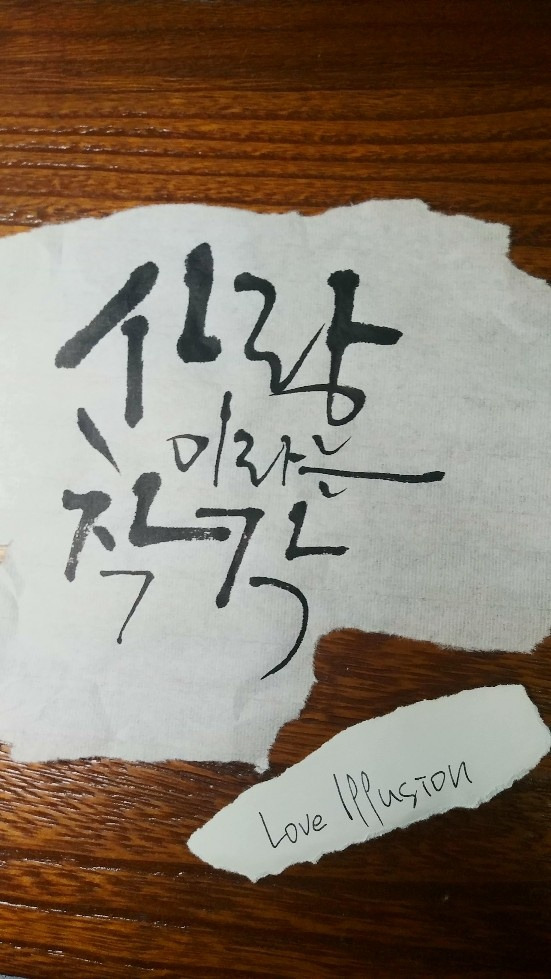 사랑
이라는
착각
Love Illusion